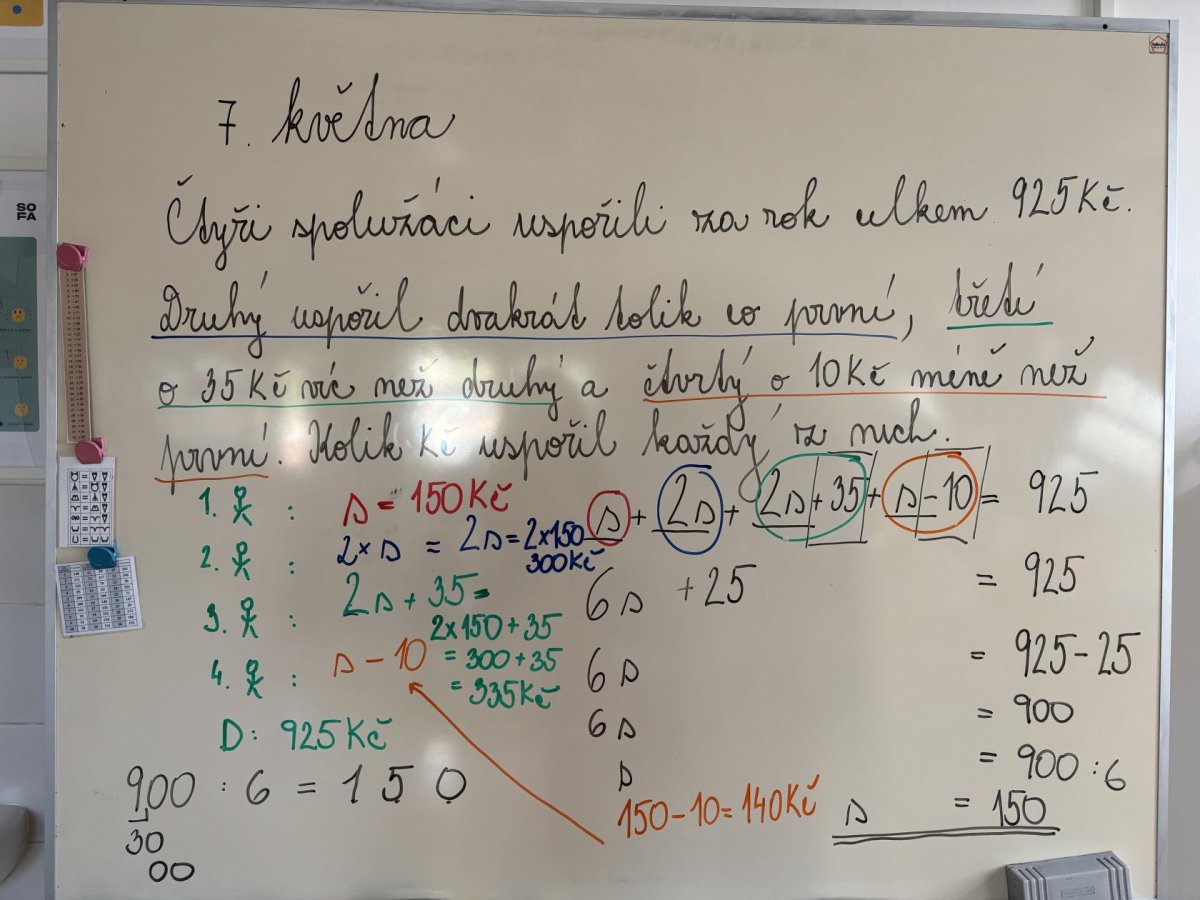 7. května
Čtyři spolužáci uspořili za rok celkem 925 Kč.
Druhý uspořil dvakrát tolik co první, třetí
o 35 Kč víc než druhý a čtvrtý o 10 Kč méně než
první. Kolik Kč uspořil každý z nich.
1. : s = 150 Kč
2. : 2 × s = 2s = 2×150
300 Kč
3. : 2s + 35 =
2×150 + 35
= 300 + 35
= 335 Kč
4. : s - 10
D: 925 Kč
900 : 6 = 150
30
00
s + 2s + 2s + 35 + s - 10 = 925
6s + 25 = 925
6s = 925 - 25
6s = 900
s = 900 : 6
s = 150
150 - 10 = 140 Kč
SO
FA